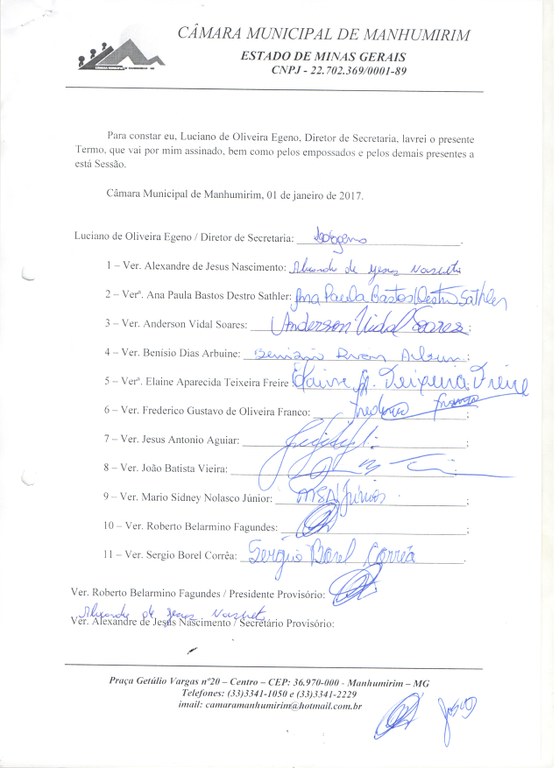 CÂMARA MUNICIPAL DE MANHUMIRIM
ESTADO DE MINAS GERAIS
CNPJ - 22.702.369/0001-89
Para constar eu, Luciano de Oliveira Egeno, Diretor de Secretaria, lavrei o presente
Termo, que vai por mim assinado, bem como pelos empossados e pelos demais presentes a
está Sessão.
Câmara Municipal de Manhumirim, 01 de janeiro de 2017.
Luciano de Oliveira Egeno / Diretor de Secretaria:
1 – Ver. Alexandre de Jesus Nascimento: Alexandre de Jesus
2 – Verª. Ana Paula Bastos Destro Sathler: Ana Paula Bastos Destro Sathler
3 – Ver. Anderson Vidal Soares: Anderson Vidal Soares;
4 – Ver. Benisio Dias Arbuine:
5 – Verª. Elaine Aparecida Teixeira Freire Elaine A. Teixeira Freire
6 – Ver. Frederico Gustavo de Oliveira Franco: Frederico Franco;
7 – Ver. Jesus Antonio Aguiar:
8 – Ver. João Batista Vieira:
9 – Ver. Mario Sidney Nolasco Júnior: MSNJúnior;
10 – Ver. Roberto Belarmino Fagundes:
11 – Ver. Sergio Borel Corrêa: Sergio Borel Corrêa
Ver. Roberto Belarmino Fagundes / Presidente Provisório:
Alexandre de Jesus
Ver. Alexandre de Jesus Nascimento / Secretário Provisório:
Praça Getúlio Vargas nº20 – Centro – CEP: 36.970-000 - Manhumirim – MG
Telefones: (33)3341-1050 e (33)3341-2229
imail: camaramanhumirim@hotmail.com.br